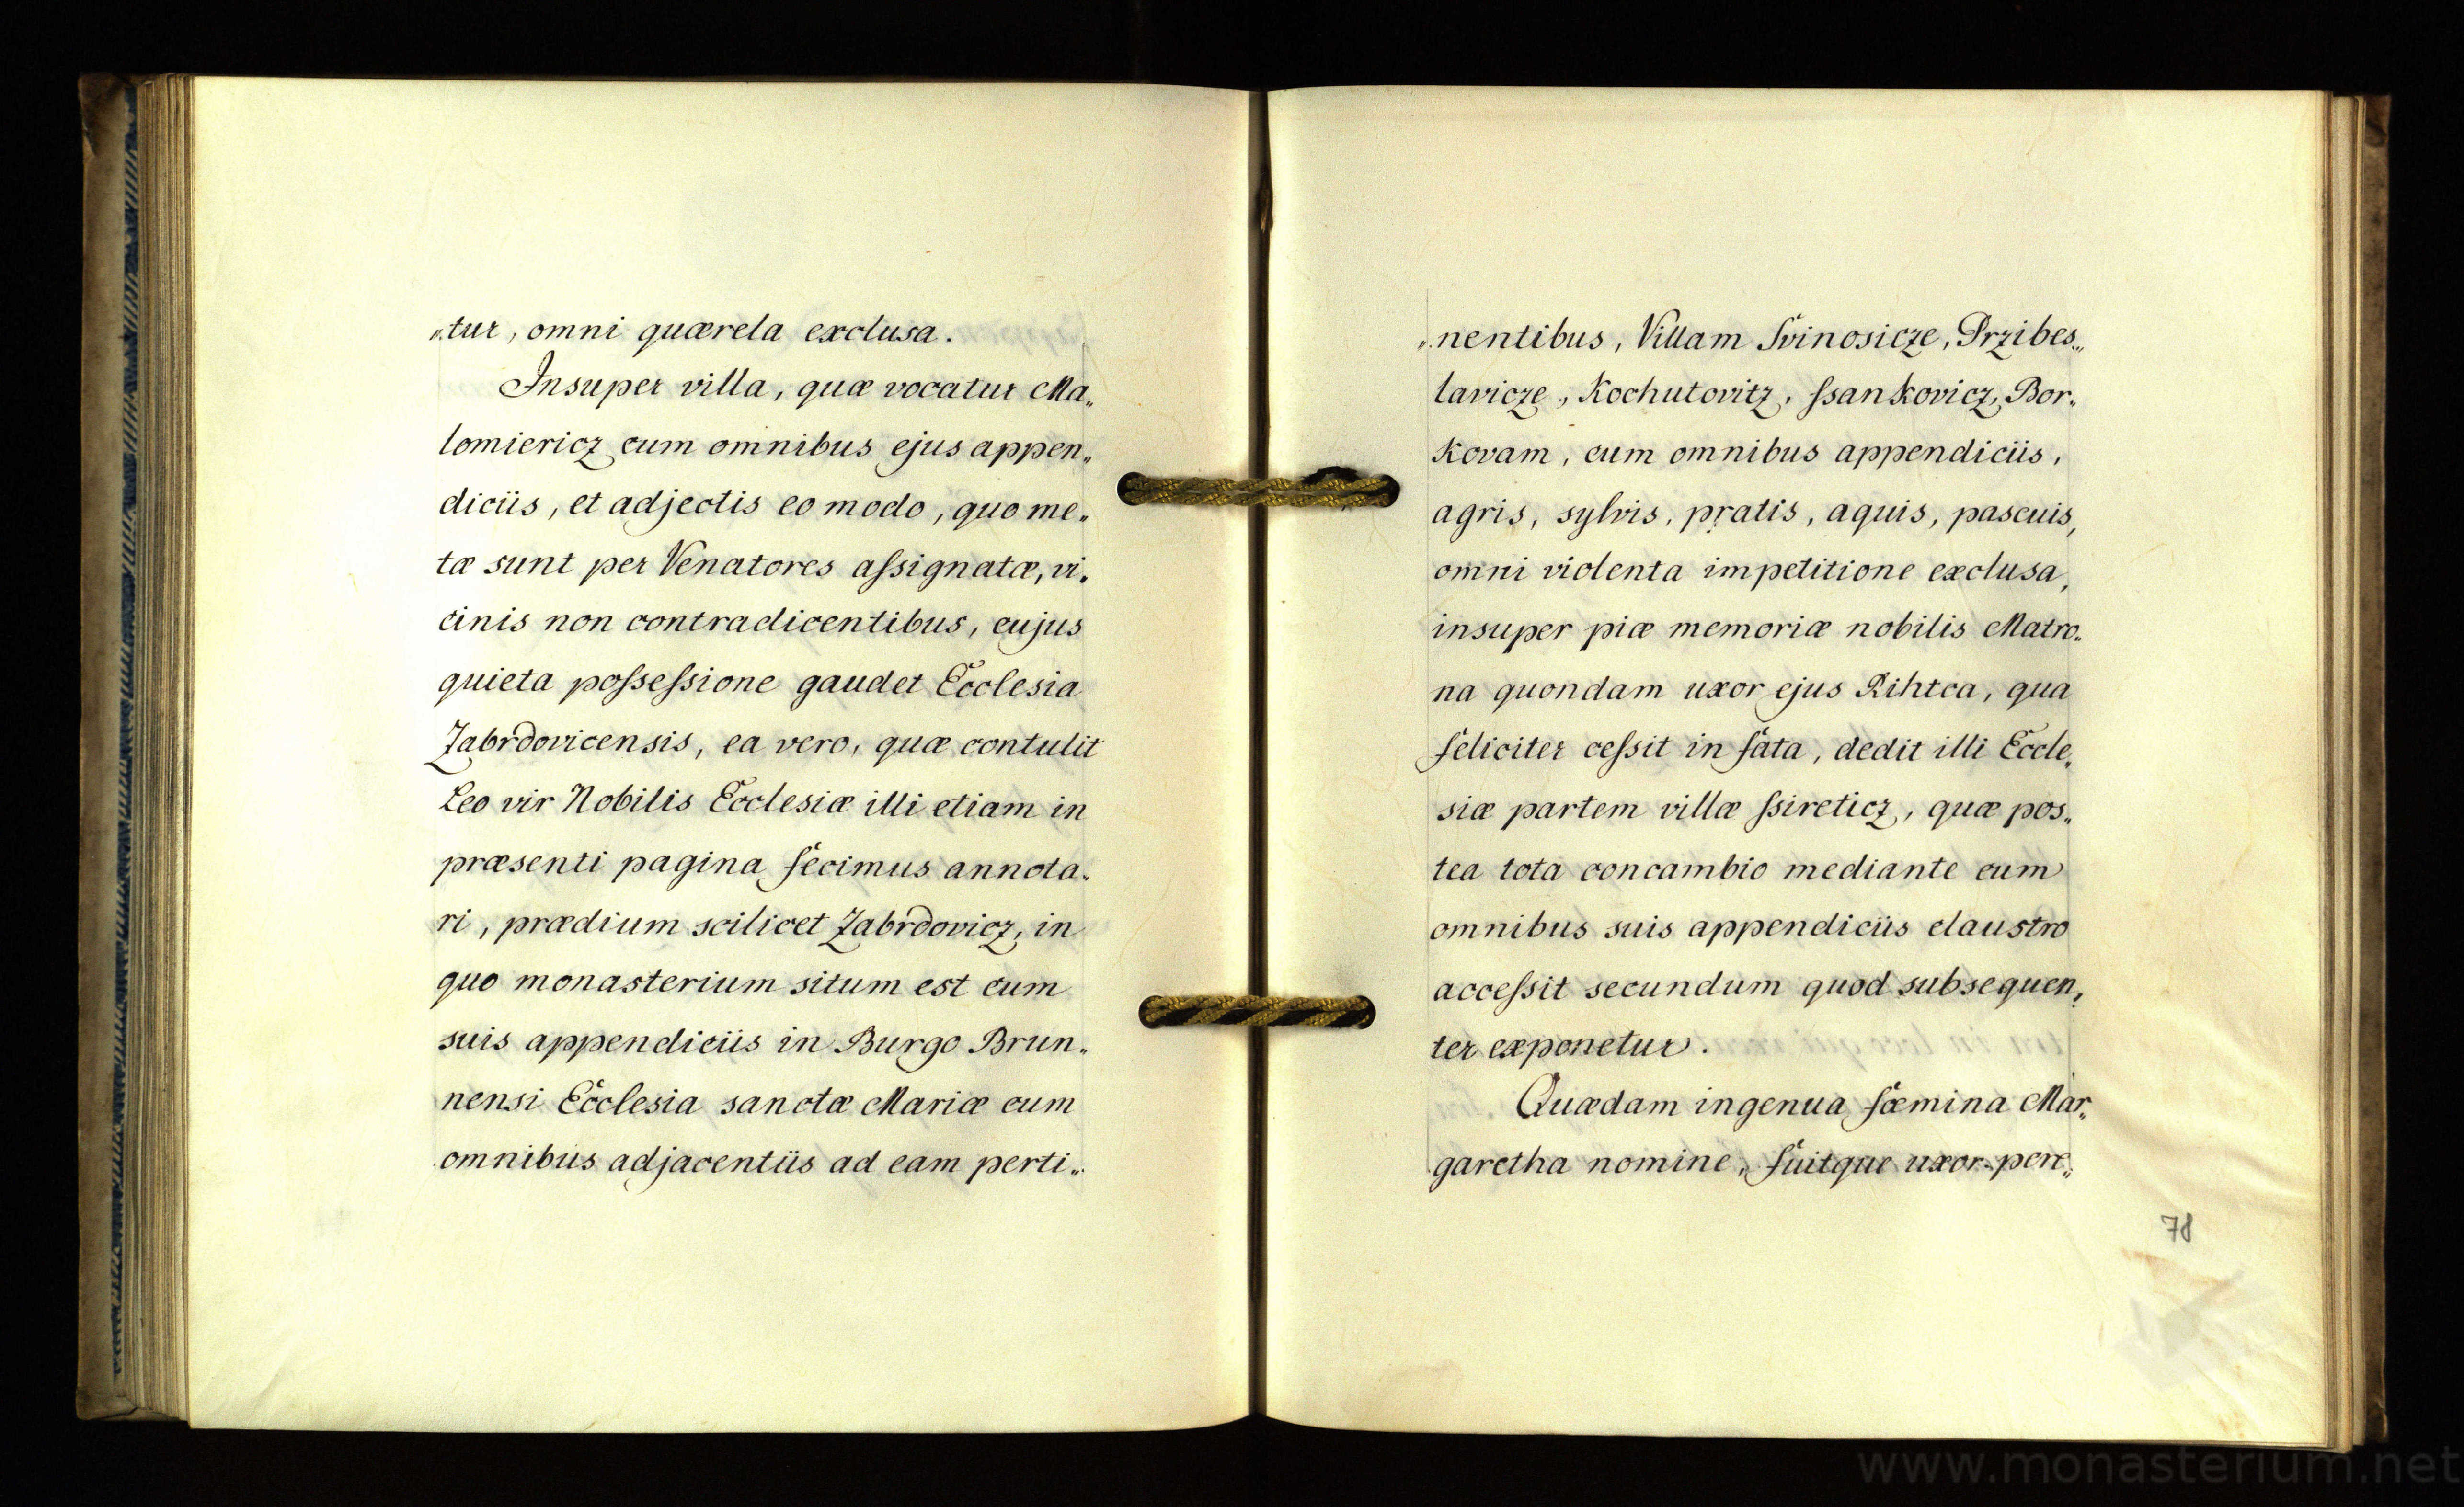 „tur, omni quærela exclusa.
Insuper villa, quæ vocatur Ma„
lomiericz cum omnibus ejus appen„
diciis, et adjectis eo modo, quo me„
tæ sunt per Venatores aſsignatæ, vi„
cinis non contradicentibus, cujus
quieta poſseſsione gaudet Ecclesia
Zabrdovicensis, ea vero, quæ contulit
Leo vir Nobilis Ecclesiæ illi etiam in
præsenti pagina fecimus annota„
ri, prædium scilicet Zabrdovicz, in
quo monasterium situm est cum
suis appendiciis in Burgo Brun„
nensi Ecclesia sanctæ Mariæ cum
omnibus adjacentiis ad eam perti„
„nentibus, Villam Svinosicze, Przibes„
lavicze, Kochutovitz, ſsankovicz, Bor„
kovam, cum omnibus appendiciis,
agris, sylvis, pratis, aquis, pascuis,
omni violenta impetitione exclusa,
insuper piæ memoriæ nobilis Matro„
na quondam uxor ejus Rihtca, qua
feliciter ceſsit in fata, dedit illi Eccle„
siæ partem villæ ſsireticz, quæ pos„
tea tota concambio mediante cum
omnibus suis appendiciis claustro
acceſsit secundum quod subsequen„
ter exponetur.
Quædam ingenua fæmina Mar„
garetha nomine, fuitque uxor pere„
78
www.monasterium.net